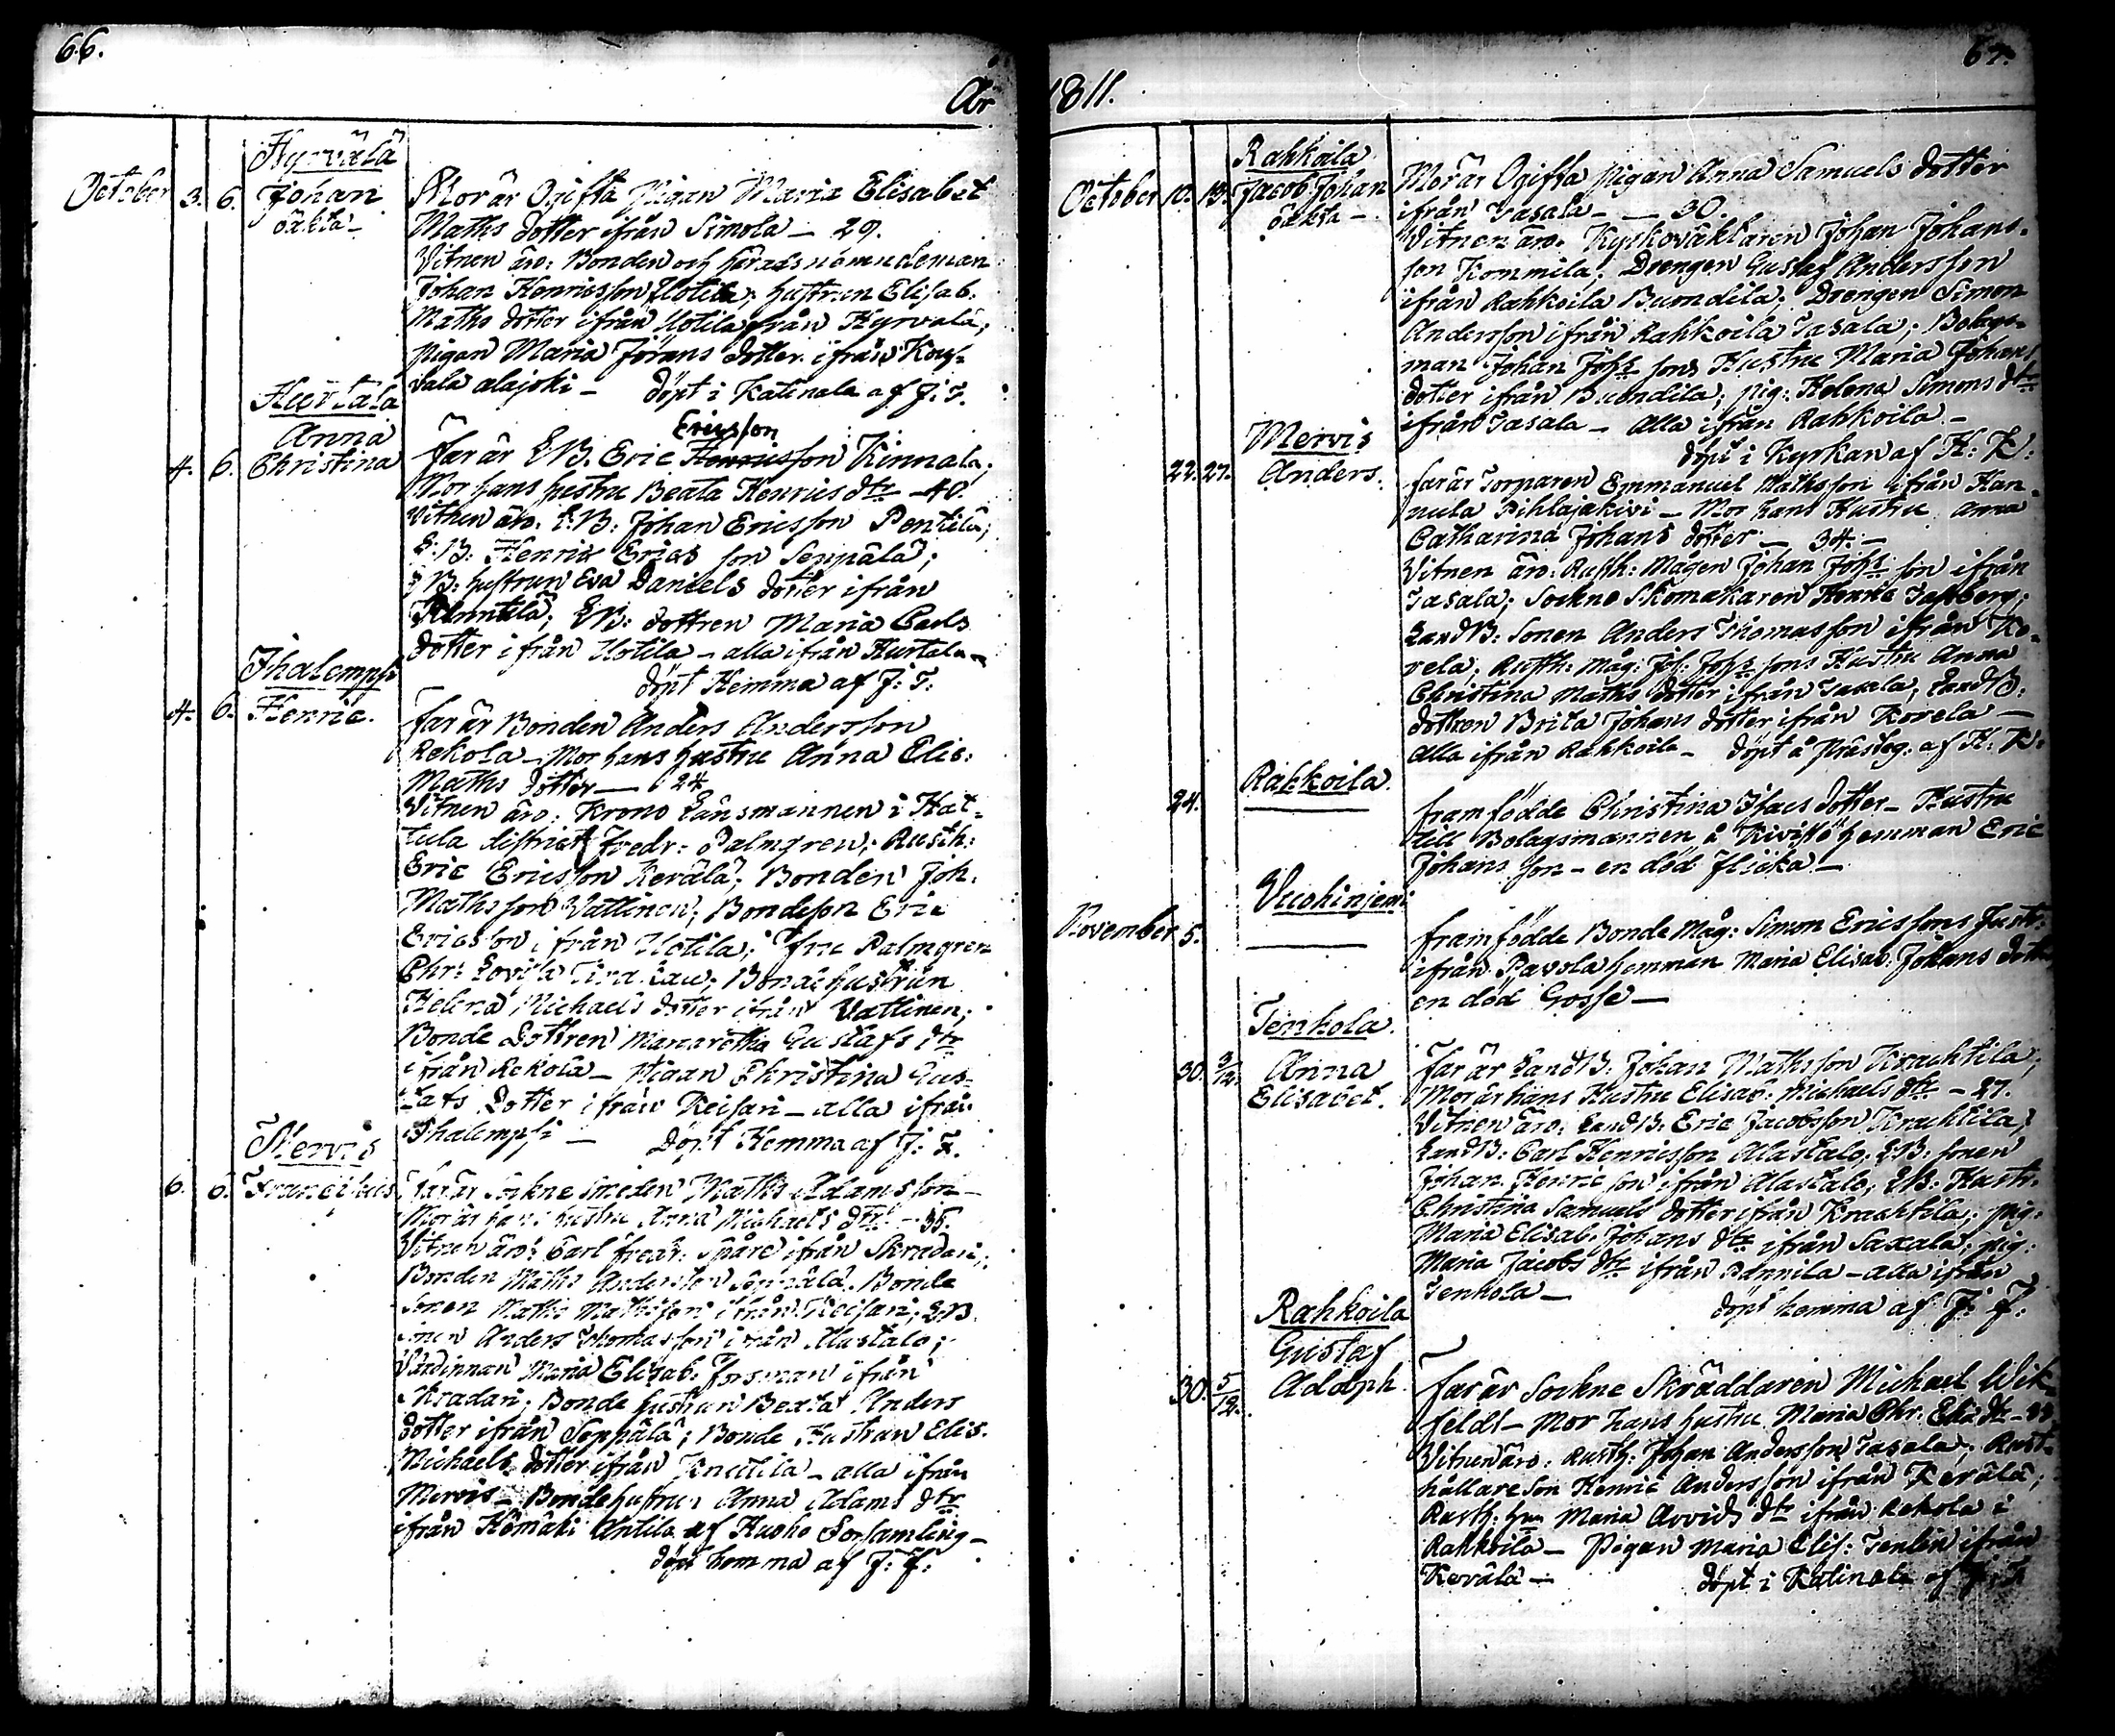 66.
År
Hyrvälä
October 3. 6. Johan
oäkta –
Mor är Ogifta Pigan Maria Elisabet
Maths dotter ifrån Simola – 29.
Vitnen äro: Bonden och häradsnämndeman
Johan Henricsson Uotila; hustrun Elisab:
Maths dotter ifrån Uotila från Hyrvälä;
pigan Maria Jörans dotter ifrån
alajoki – döpt i Katinala af J: T.
Hurtala
Anna
4. 6. Christina
Ericsson
far är L B. Eric Henricsson Kinnala;
Mor hans hustru Beata Henrics dtr – 40.
Vitnen äro: L: B: Johan Ericsson Pentilä;
L: B: Henric Erics son Seppälä;
L B: hustrun Eva Daniels dotter ifrån
LB: dottren Maria Carls
dotter ifrån Uotila – alla ifrån Hurtala –
döpt Hemma af J: T:
Ihalempi
4. 6. Henric.
far är Bonden Anders Andersson
Rekola – Mor hans hustru Anna Elis:
Maths dotter — 24
Vitnen äro: Krono Länsmannen i Hat-
tula district Fredr: Palmgren; Rusth:
Eric Ericsson Kerälä; Bonden Joh.
Mathsson Vattinen; Bondeson Eric
Ericsson ifrån Uotila; fru Palmgren
Chr: Lovisa Bonde hustrun
Helena Michaels dotter ifrån Vattinen;
Bonde Dottren Margaretha Gustafs dtr
ifrån Rekola – Pigan Christina Gus-
tafs Dotter ifrån Keisari – alla ifrån
Ihalempi — Döpt Hemma af J: T.
Mervis
6. 6. Franciscus
far är Sockne Smeden Maths Adamsson –
Mor är hans hustru Anna Michaels dtr – 35.
Vitnen äro: Carl Fredr: Spåre ifrån Skradari;
Bonden Maths Andersson Seppälä. Bonde
Sonen Maths Mathsson ifrån Keisari; LB
sonen Anders Thomasson ifrån Alastalo;
Värdinnan Maria Elisab. Forsman ifrån
Skradari; Bonde hustrun Beata Anders
dotter ifrån Seppälä; Bonde Hustrun Elis.
Michaels dotter ifrån Knutila – alla ifrån
Mervis – Bonde hustrun Anna Adams dtr
ifrån Hömäki Antila af Hauho Församling –
döpt hemma af J: T:
67.
1811.
Rahkoila
October 10. 13. Jacob Johan
oäkta –
Mor är Ogifta pigan Anna Samuels dotter
ifrån Jasala – — 30.
Vitnen äro. Kyrkoväktaren Johan Johans-
son Kommila; Drengen Gustaf Andersson
ifrån Rahkoila Buondila; Drengen Simon
Andersson ifrån Rahkoila Jasala; Bolags-
man Johan Johs sons Hustru Maria Johans
dotter ifrån Buondila; pig: Helena Simons dtr
ifrån Jasala – Alla ifrån Rahkoila –
döpt i Kyrkan af H: K:
Mervis
22. 27. Anders.
far är Torparen Emmanuel Mathsson ifrån Han-
nula Pihlajakivi – Mor hans Hustru Anna
Catharina Johans dotter — 34. –
Vitnen äro: Rusth: Mågen Johan Johs son ifrån
Jasala; Sockne Skomakaren Henric
Land B: Sonen Anders Thomasson ifrån Ko-
vela, Rusth: Måg: Joh: Johs sons Hustru Anna
Christina Maths dotter ifrån Jasala; Land B:
dottren Brita Johans dotter ifrån Kovela —
Alla ifrån Rahkoila – döpt å Prästeg: af H: K:
Rahkoila
24.
framfödde Christina Isacs dotter – Hustru
till Bolagsmannen å Kivistö hemman Eric
Johans son – en död flicka –
Vuohinjemi
November 5.
framfödde Bonde Måg: Simon Ericssons Hust:
ifrån Pavola hemman Maria Elisab: Johans dotter
en död Gosse —
Tenhola
30. 3/12. Anna
Elisabet.
far är Land B: Johan Mathsson Kraaktila;
Mor är hans Hustru Elisab: Michaels dtr – 27.
Vitnen äro: Land B: Eric Jacobsson Kraaktila;
Land B: Carl Henricsson Alastalo; LB: sonen
Johan Henricsson ifrån Alastalo; LB: Hustr:
Christina Samuels dotter ifrån Kraaktila; pig:
Maria Elisab: Johans dtr ifrån Saxala; pig:
Maria Jacobs dtr ifrån Pannila – alla ifrån
Tenhola – döpt hemma af J: T:
Rahkoila
Gustaf
30. 5/12. Adolph
far är Sockne Skräddaren Michael Wik-
feldt – Mor hans hustru Maria Chr: dtr –
Vitnen äro: Rusth: Johan Andersson Jasala; Rust-
hållare Son Henric Andersson ifrån Kerälä;
Rusth: hu Maria Arvids dtr ifrån Rekola i
Rahkoila – Pigan Maria Elis: Tenlén ifrån
Kerälä – döpt i Katinala af J: T